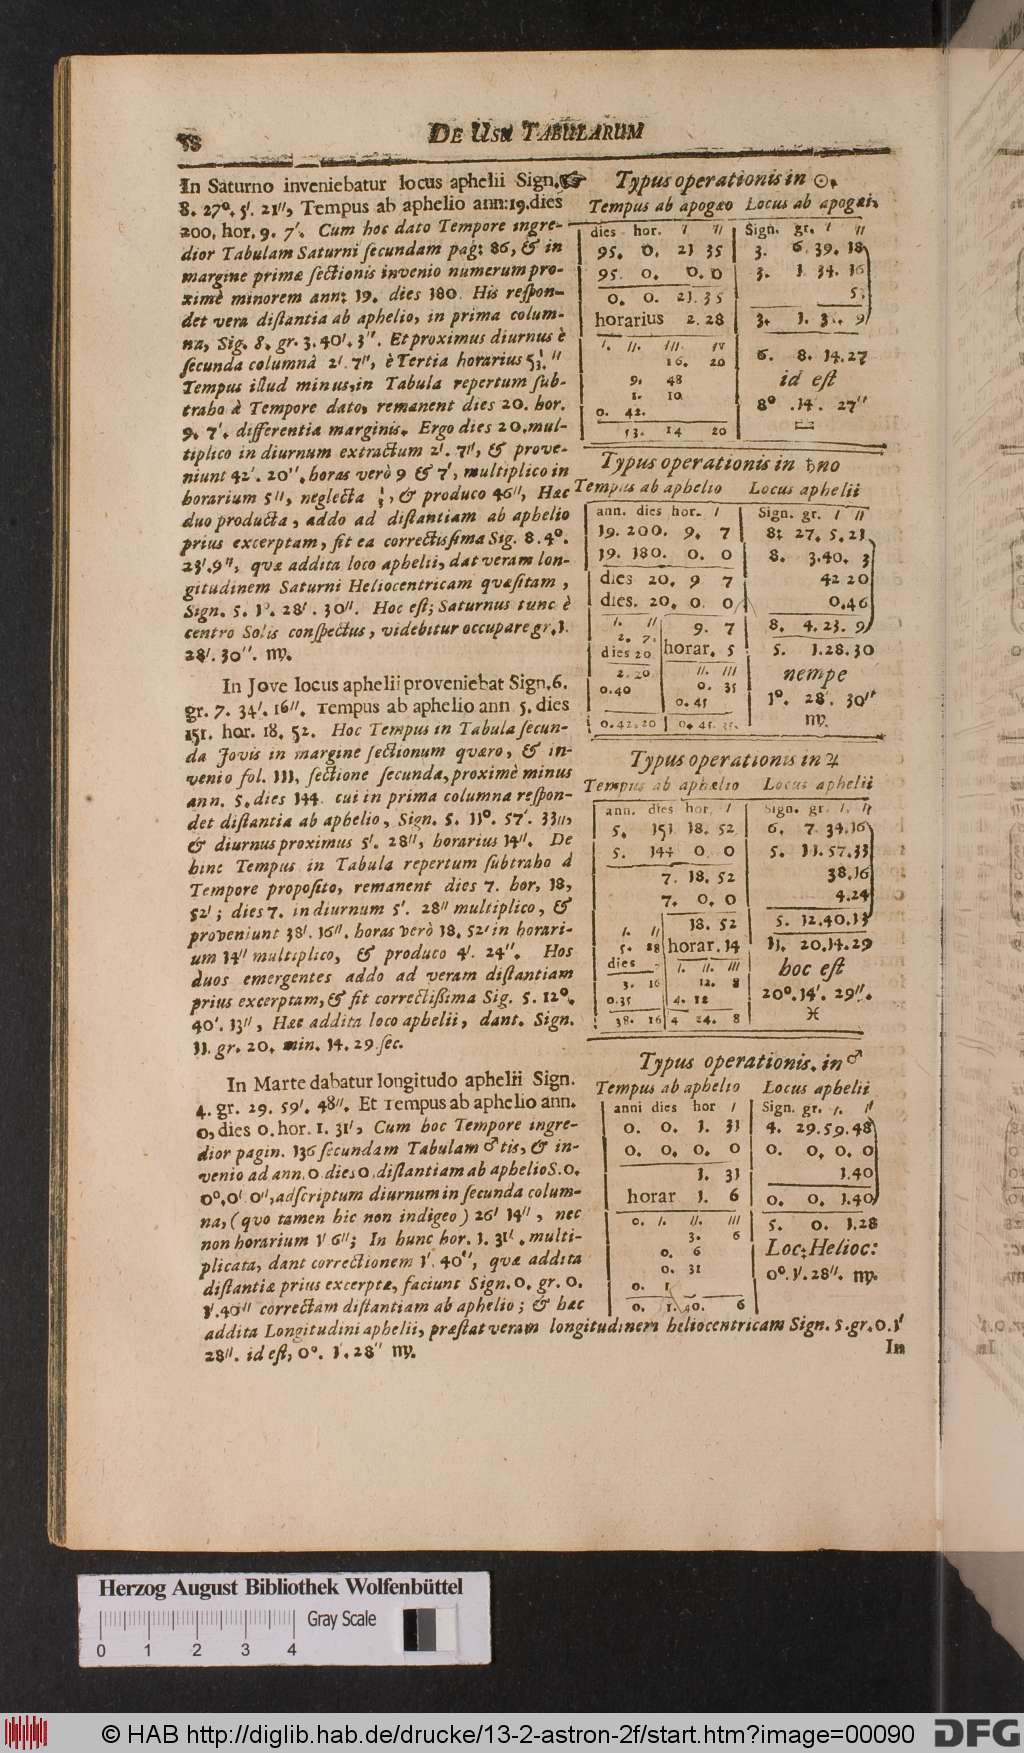 58
DE USU TABULARUM
In Saturno inveniebatur locus aphelii Sign.
8. 27°. 5′. 21″, Tempus ab aphelio ann:19.dies
200, hor. 9. 7′. Cum hoc dato Tempore ingre-
dior Tabulam Saturni secundam pag: 86, & in
margine primæ sectionis invenio numerum pro-
ximè minorem ann: 19. dies 180. His respon-
det vera distantia ab aphelio, in prima colum-
na, Sig. 8. gr. 3. 40′. 3″. Et proximus diurnus è
secunda columnâ 2′. 7″, è Tertia horarius 5⅓″
Tempus illud minus, in Tabula repertum sub-
traho à Tempore dato, remanent dies 20. hor.
9. 7′. differentia marginis. Ergo dies 20. mul-
tiplico in diurnum extractum 2′. 7″, & prove-
niunt 42′. 20″, horas verò 9 & 7′, multiplico in
horarium 5″, neglecta ⅓, & produco 46″, Hæc
duo producta, addo ad distantiam ab aphelio
prius excerptam, fit ea correctissima Sig. 8. 4°.
23′. 9″, quæ addita loco aphelii, dat veram lon-
gitudinem Saturni Heliocentricam quæsitam,
Sign. 5. 1°. 28′. 30″. Hoc est; Saturnus tunc è
centro Solis conspectus, videbitur occupare gr. 1.
28′. 30″. ♍.
In Jove locus aphelii proveniebat Sign. 6.
gr. 7. 34′. 16″. Tempus ab aphelio ann 5. dies
151. hor. 18. 52. Hoc Tempus in Tabula secun-
da Jovis in margine sectionum quæro, & in-
venio fol. 111, sectione secunda, proximè minus
ann. 5. dies 144. cui in prima columna respon-
det distantia ab aphelio, Sign. 5. 11°. 57′. 33″,
& diurnus proximus 5′. 28″, horarius 14″. De
hinc Tempus in Tabula repertum subtraho à
Tempore proposito, remanent dies 7. hor, 18,
52′; dies 7. in diurnum 5′. 28″ multiplico, &
proveniunt 38′. 16″. horas verò 18. 52′ in horari-
um 14″ multiplico, & produco 4′. 24″. Hos
duos emergentes addo ad veram distantiam
prius excerptam, & fit correctissima Sig. 5. 12°.
40′. 13″, Hæc addita loco aphelii, dant. Sign.
11. gr. 20. min. 14. 29 sec.
In Marte dabatur longitudo aphelii Sign.
4. gr. 29. 59′. 48″. Et Tempus ab aphelio ann.
0, dies 0. hor. 1. 31′, Cum hoc Tempore ingre-
dior pagin. 136 secundam Tabulam ♂tis, & in-
venio ad ann. 0 dies 0 distantiam ab aphelio S. 0.
0°, 0′. 0″, adscriptum diurnum in secunda colum-
na, (quo tamen hic non indigeo) 26′ 14″, nec
non horarium 1′ 6″; In hunc hor. 1. 31′. multi-
plicata, dant correctionem 1′. 40″, quæ addita
distantiæ prius excerptæ, faciunt Sign. 0. gr. 0.
1′. 40″ correctam distantiam ab aphelio; & hæc
addita Longitudini aphelii, præstat veram longitudinem heliocentricam Sign. 5. gr. 0. 1′
28″. id est, 0°. 1′. 28″ ♍.
In
☞ Typus operationis in ☉.
Tempus ab apogæo Locus ab apogæi.
dies hor. ′ ″ Sign. gr. ′ ″
95. 0. 21 35 3. 6. 39. 18
95. 0. 0. 0 3. 1. 34. 16
0. 0. 21. 35 5.
horarius 2. 28 3. 1. 3. 9
′. ″. ‴. ⁗
16. 20 6. 8. 14. 27
9. 48 id est
1. 10 8° .14′. 27″
0. 42.
53. 14 20
Typus operationis in ♄no
Tempus ab aphelio Locus aphelii
ann. dies hor. ′ Sign. gr. ′ ″
19. 200. 9. 7 8: 27. 5. 21
19. 180. 0. 0 8. 3. 40. 3
dies 20. 9 7 42 20
dies. 20. 0. 0 0.46
′. ″ 9. 7 8. 4. 23. 9
2. 7.
dies 20 horar. 5 5. 1. 28. 30
2. 20 ″. ‴ nempe
0.40 0. 35
0. 45 1°. 28′. 30″
0. 42. 20 0. 45. 35. ♍.
Typus operationis in ♃
Tempus ab aphælio Locus aphelii
ann. dies hor. ′ Sign. gr. ′. ″
5. 151 18. 52 6. 7 34. 16
5. 144 0 0 5. 11. 57. 33
7. 18. 52 38.16
7. 0. 0 4.24
18. 52 5. 12. 40. 13
′. ″
5. 28 horar. 14 11. 20. 14. 29
dies 7 ′. ″. ‴ hoc est
3. 16 12. 8
0.35 4. 12 20°. 14′. 29″.
38. 16 4 24. 8 ♓
Typus operationis. in ♂
Tempus ab aphelio Locus aphelii
anni dies hor ′ Sign. gr. ′. ″
0. 0. 1. 31 4. 29. 59. 48
0. 0. 0. 0 0. 0. 0. 0
1. 31 1.40
horar 1. 6 0. 0. 1.40
0. ′. ″. ‴ 5. 0. 1.28
3. 6
0. 6 Loc: Helioc:
0. 31 0°. 1′. 28″. ♍.
0. 1
0. 1. 40. 6
Herzog August Bibliothek Wolfenbüttel
Gray Scale
0 1 2 3 4
© HAB http://diglib.hab.de/drucke/13-2-astron-2f/start.htm?image=00090
DFG